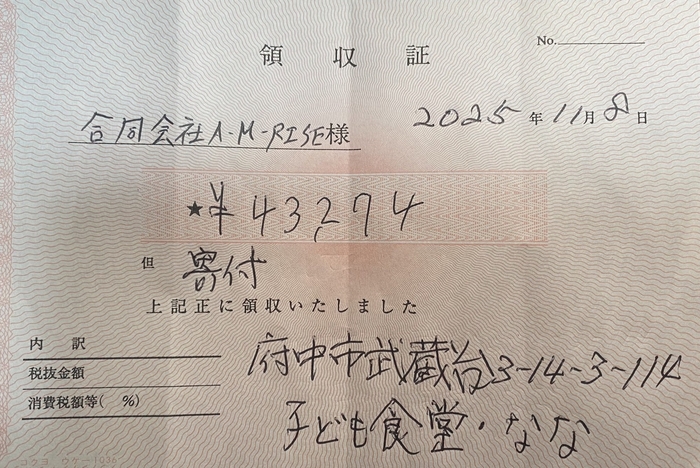 領収証
No.
2025年11月8日
合同会社A-M-RISE様
★¥43,274
但 寄付
上記正に領収いたしました
内 訳
税抜金額
消費税額等( %)
府中市武蔵台3-14-3-114
子ども食堂・なな